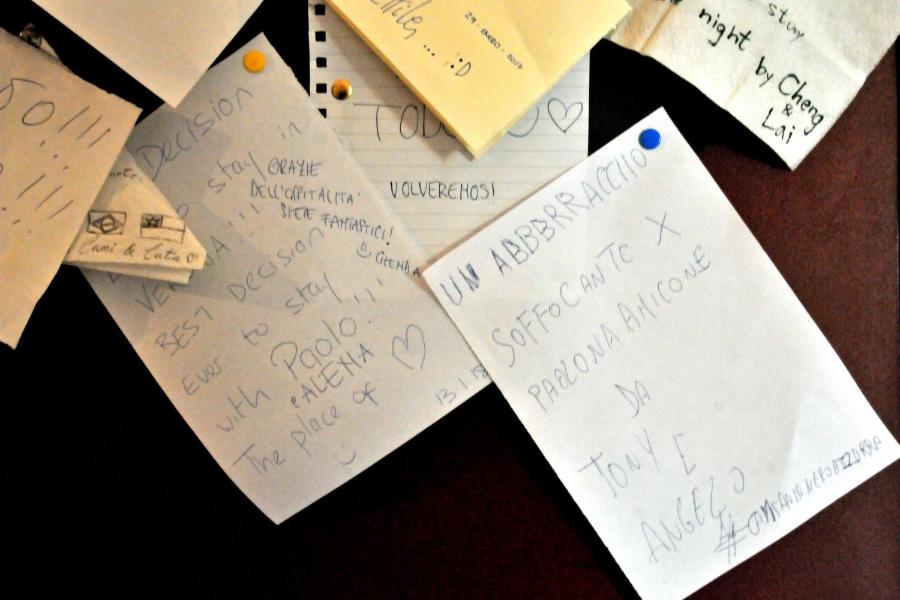 O!!!
!!!
Cami & Cata ♡
Decision
to stay in
VERONA!!!
BEST DECISION
Ever to stay
with Paolo!!!
e ALENA
The place of ♡
13.1.18
GRAZIE
DELL'OSPITALITA'
SIETE FANTASTICI!
GLENDA
♡
VOLVEREMOS!
... :D
29-ENERO-2017
stay
night
by Cheng
&
Lai
UN ABBBRRACCIO
SOFFOCANTE X
PAOLONA AMICONE
DA
TONY E
ANGELO